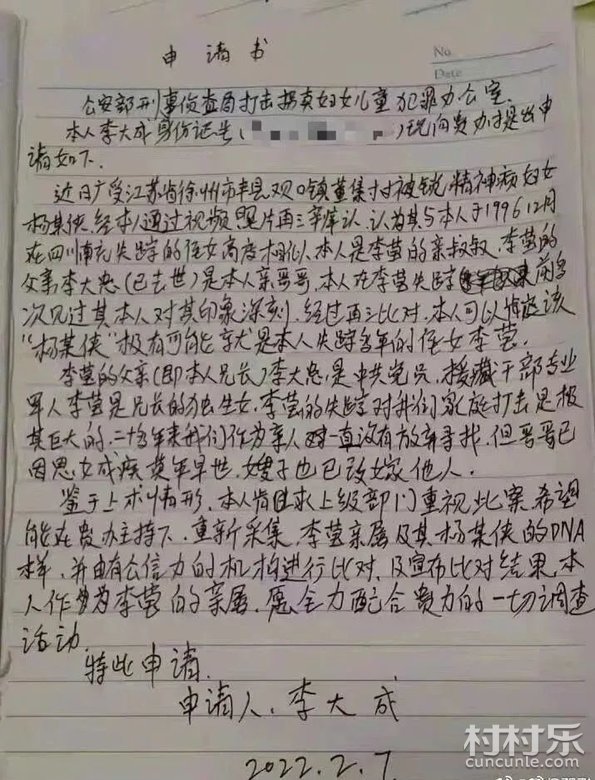 申请书
No.
Date
公安部刑事侦查局打击拐卖妇女儿童犯罪办公室
本人李大成身份证号( )现向贵办提出申
请如下.
近日广受江苏省徐州市丰县欢口镇董集村被锁精神病妇女
杨某侠.经本人通过视频照片再三辨认.认为其与本人于1996 12月
在四川南充失踪的侄女高度相似.本人是李莹的亲叔叔.李莹的
父亲李大忠(已去世)是本人亲哥哥.本人在李莹失踪 前多
次见过其本人对其印象深刻.经过再三比对.本人可以 该
"杨某侠"极有可能就是本人失踪多年的侄女李莹.
李莹的父亲(即本人兄长)李大忠.是中共党员.援藏干部专业
军人李莹是兄长的独生女.李莹的失踪对我们家庭打击是极
其巨大的.二十多年来我们作为亲人 一直没有放弃寻找.但哥哥已
因思女成疾英年早世.嫂子也已改嫁他人.
鉴于上术情形.本人肯求上级部门重视此案.希望
能在贵办主持下.重新采集.李莹亲属及其杨某侠的DNA
样.并由有公信力的机构进行比对.及宣布比对结果.本
人作为李莹的亲属.愿全力配合贵力的一切调查
活动.
特此申请.
申请人.李大成
2022.2.7
村村乐
cuncunle.com